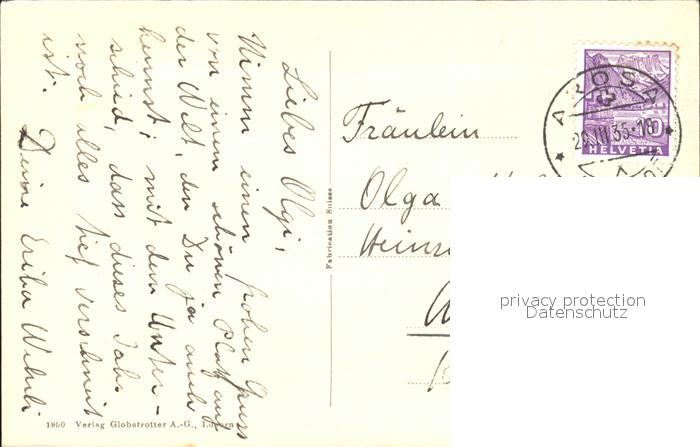 Liebes Olgi,
Nimm einen frohen Gruss
von einem schönen Platz auf
der Welt, den Du ja auch
kennst; mit dem Unter-
schied, dass dieses Jahr
noch alles tief verschneit
ist.
Deine Erika Wehrli
1950 Verlag Globetrotter A.-G., Luzern
Fabrication Suisse
Fräulein
Olga
Heinr
AROSA
HELVETIA
10
privacy protection
Datenschutz